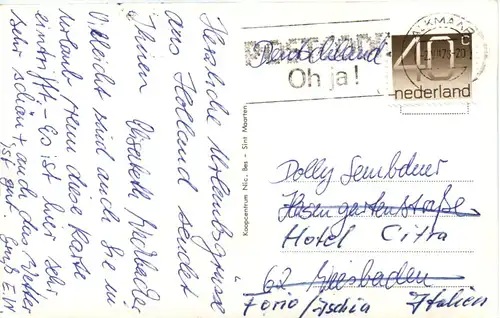 Herzliche Urlaubsgrüsse
aus Holland sendet
Ihnen Elisabeth
Vielleicht sind auch Sie in
Urlaub, wenn diese Karte
eintrifft. - Es ist hier sehr,
sehr schön + auch das Wetter
ist gut. Gruß E.M.
Koopcentrum Nic. Bes - Sint Maarten
POSTCODE
Deutschland
Oh ja!
ALKMAAR
40c
nederland
Dolly Sembdner
Hasengartenstraße
Hotel Citta
62 Wiesbaden
Forio/Ischia Italien